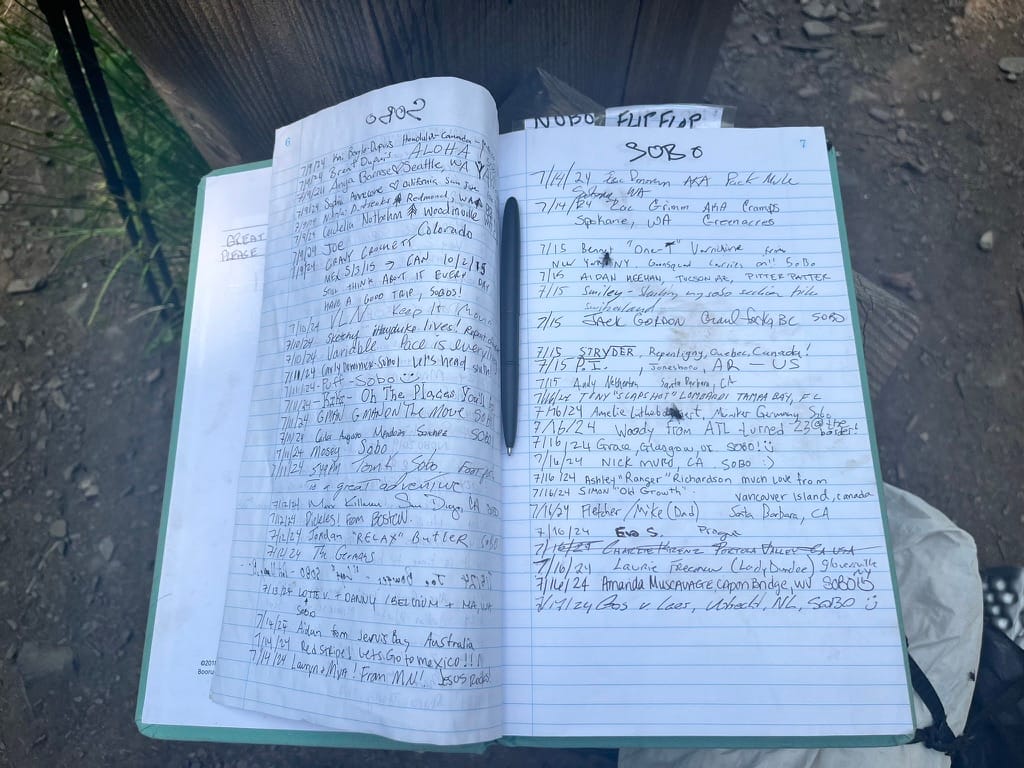 GREAT
PLEASE
©201
Booru
6
SOBO
7/9/24 Honolulu
7/9/24 Brent Dupuis ALOHA
7/9/24 Anya Seattle, WA
7/9/24 Sophie California
7/9/24 Redmond, WA
7/9/24 Woodinville
7/9/24 JOE Colorado
7/9/24 CROCKETT
MEX 5/3/15 → CAN 10/2/15
STILL THINK ABOUT IT EVERY DAY
HAVE A GOOD TRIP, SOBOS!
7/10/24 VLN KEEP IT
7/10/24 Hayduke lives!
7/10/24 Variable Pace is
7/10/24 Let's head
7/11/24 - Puff - SOBO
7/11/24 - Oh The Places You'll
7/11/24 GMAN ON THE MOVE SOBO
7/11/24 Mendoza Sanchez SOBO
7/11/24 Mosey Sobo
7/11/24 Sobo
is a great adventure
7/12/24 Max San Diego, CA
7/12/24 Dickies! From BOSTON.
7/12/24 Jordan "RELAX" Butler SOBO
7/12/24 The Germans
7/13/24 LOTTE V. + DANNY / BELGIUM + MA, USA
SOBO
7/14/24 Aidan from Jervis Bay Australia
7/14/24 Redstripe! Lets Go to mexico!!!
7/14/24 Lauryn + From MN! Jesus Rocks!
NOBO FLIP FLOP
7
SOBO
7/14/24 AKA Pack Mule
WA
7/14/24 Zac Grimm AKA Cramps
Spokane, WA Greenacres
7/15 Bennet "One-T" from
NW NY SOBO
7/15 AIDAN MEEHAN, TUCSON AZ, PITTER PATTER
7/15 Smiley - Starting my sobo section hike
Switzerland
7/15 JACK GORDON Grand Forks, BC SOBO
7/15 STRYDER, Repentigny, Quebec, Canada!
7/15 P.I., Jonesboro, AR - US
7/15 Andy Netherton Santa Barbara, CA
7/16/24 TONY "SLAPSHOT" LOMBARDI TAMPA BAY, FL
7/16/24 Amelie Münster Germany Sobo
7/16/24 Woody from ATL turned 23 @ the border!
7/16/24 Grace, Glasgow, SOBO!
7/16/24 NICK MURO CA SOBO :)
7/16/24 Ashley "Ranger" Richardson much love from
7/16/24 SIMON "Old Growth" Vancouver island, canada
7/16/24 Fletcher / Mike (Dad) Santa Barbara, CA
7/16/24 Eva S. Prague
7/16/24 CHARLIE PORTOLA VALLEY CA USA
7/16/24 Laurie FREEMAN (Lady Dundee)
7/16/24 Amanda MUSCAVAGE, Capon Bridge, WV SOBO
7/17/24 Utrecht, NL, SOBO